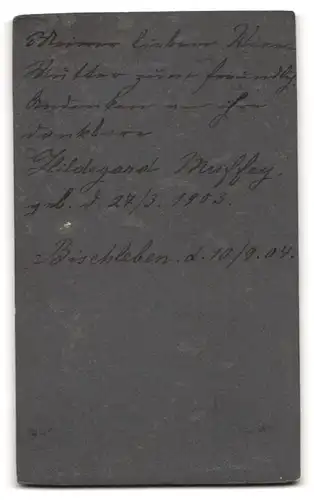 Meiner lieben
Mutter zum freundl.
Andenken an ihre
dankbare
Hildegard Muffey.
geb. d. 24/3. 1903.
Bischleben. d. 10/9. 04.